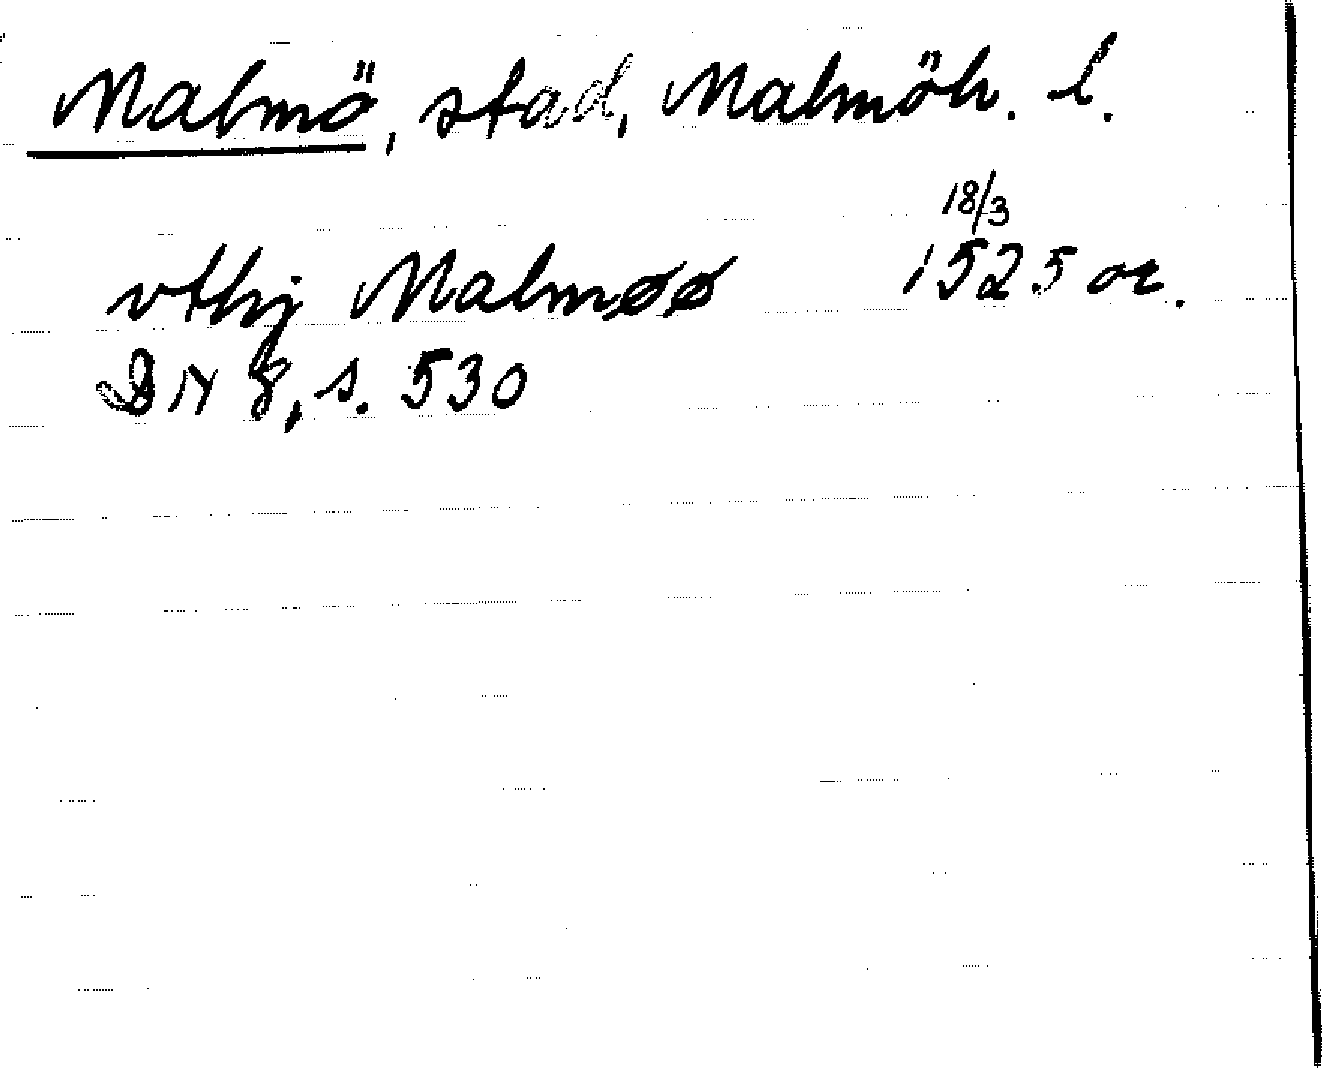 Malmö, stad, Malmöh. l.
18/3
vthj Malmøø 1525 or.
DN 8, s. 530